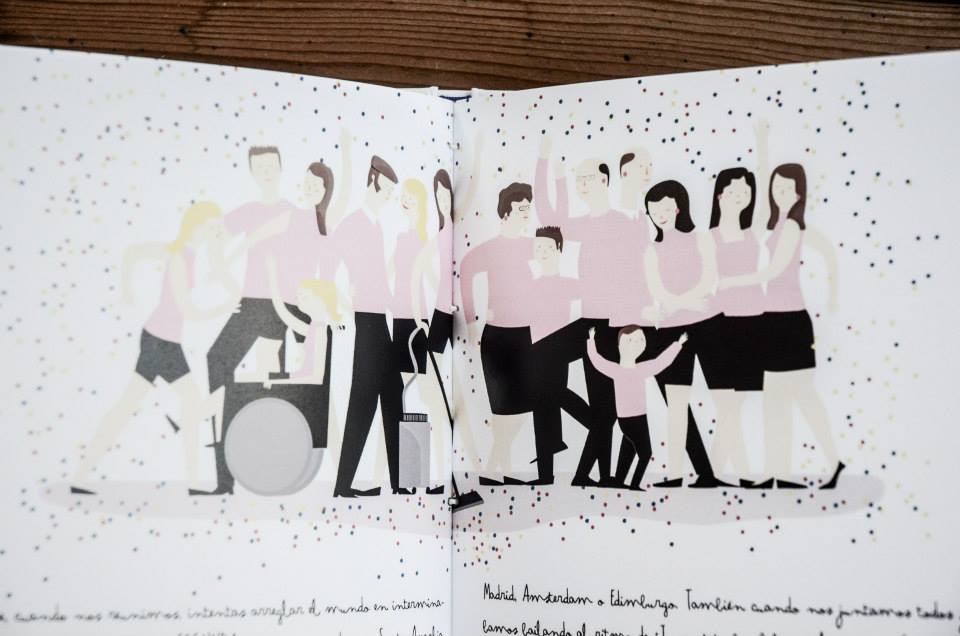 cuando nos reunimos, intentas arreglar el mundo en intermina-
Madrid, Amsterdam o Edimburgo. También cuando nos juntamos todos y
lamos bailando al ritmo de